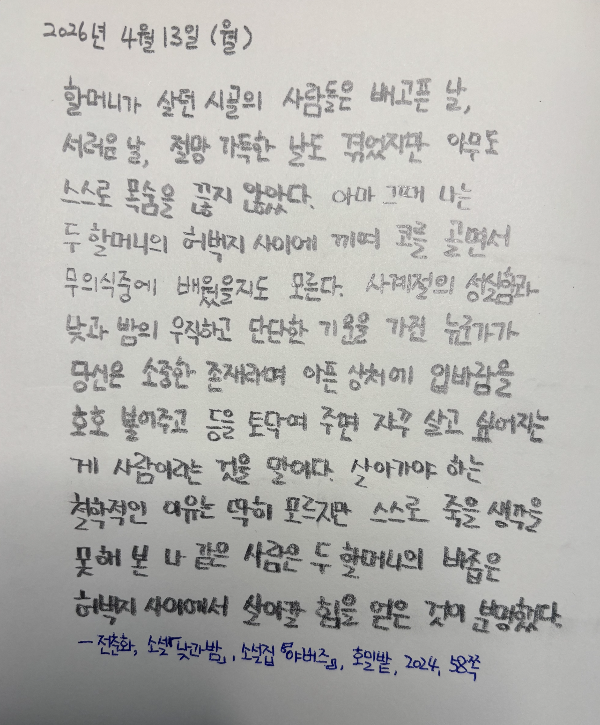 2026년 4월 13일 (월)
할머니가 살던 시골의 사람들은 배고픈 날,
서러운 날, 절망 가득한 날도 겪었지만 아무도
스스로 목숨을 끊지 않았다. 아마 그때 나는
두 할머니의 허벅지 사이에 끼여 코를 골면서
무의식중에 배웠을지도 모른다. 사계절의 성실함과
낮과 밤의 우직하고 단단한 기운을 가진 누군가가
당신은 소중한 존재라며 아픈 상처에 입바람을
호호 불어주고 등을 토닥여 주면 자꾸 살고 싶어지는
게 사람이라는 것을 말이다. 살아가야 하는
철학적인 이유는 딱히 모르지만 스스로 죽을 생각을
못해 본 나 같은 사람은 두 할머니의 비좁은
허벅지 사이에서 살아갈 힘을 얻은 것이 분명했다.
- 전춘화, 소설「낮과 밤」, 소설집『야버즈』, 호밀밭, 2024, 58쪽